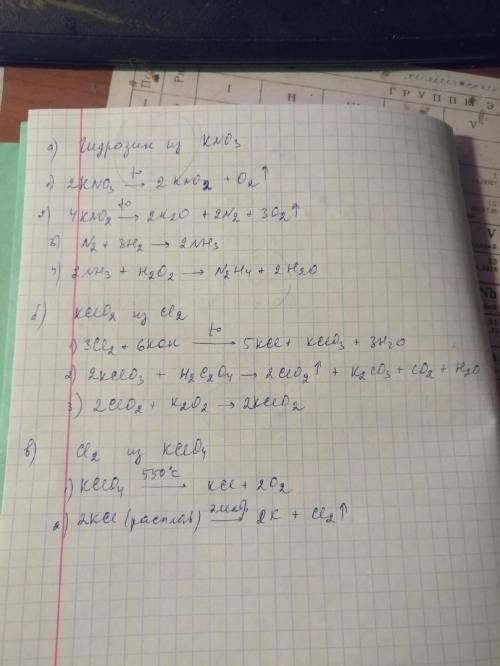 химический
ГРУППЫ Э
I
V
а) Гидрозин из KNO3
1) 2KNO3 —t°→ 2 KNO2 + O2↑
2) 4KNO2 —t°→ 2K2O + 2N2 + 3O2↑
3) N2 + 3H2 → 2NH3
4) 2NH3 + H2O2 → N2H4 + 2H2O
б) KClO2 из Cl2
1) 3Cl2 + 6KOH —t°→ 5KCl + KClO3 + 3H2O
2) 2KClO3 + H2C2O4 → 2ClO2↑ + K2CO3 + CO2 + H2O
3) 2ClO2 + K2O2 → 2KClO2
в) Cl2 из KClO4
1) KClO4 —550°C→ KCl + 2O2
2) 2KCl (расплав) —электр.→ 2K + Cl2↑